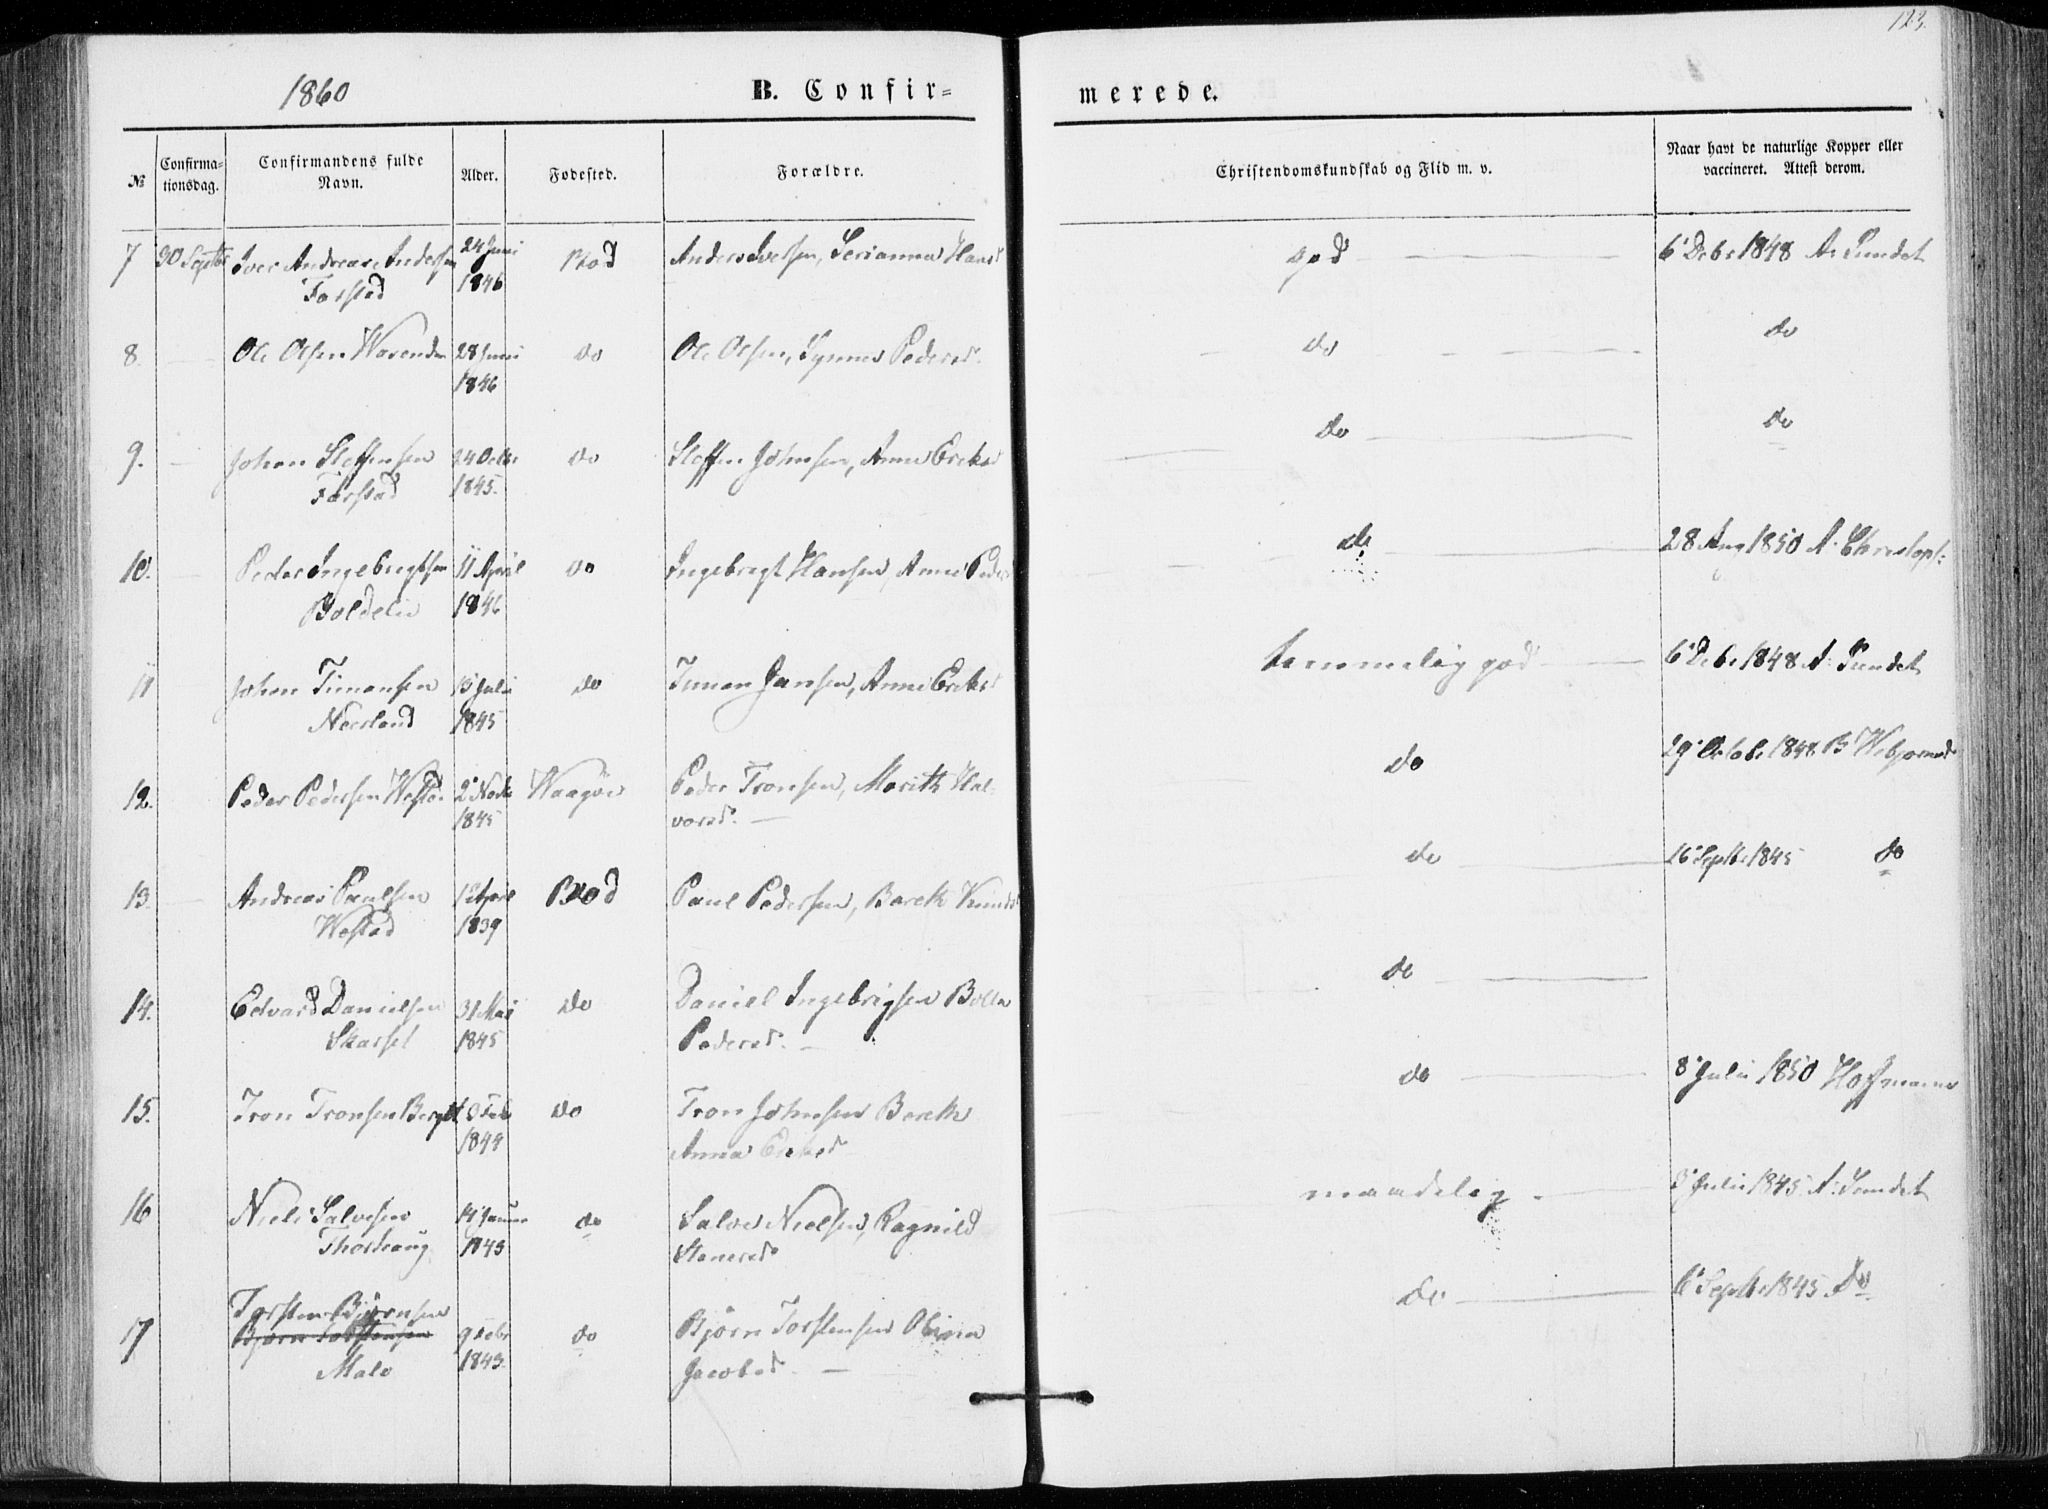 123.
1860
B. Confir=
merede.
№
Confirma=
tionsdag.
Confirmandens fulde
Navn.
Alder.
Fødested.
Forældre.
Christendomskundskab og Flid m. v.
Naar havt de naturlige Kopper eller
vaccineret. Attest derom.
7 30 Septbr Iver Andreas Andersen 24 Juni Bod Anders Iversen, Serianna Hansd god 6 Debr 1848 A. Sundet
Farstad 1846
8. Ole Olsen 28 Juni do Ole Olsen, Synnev Pedersd. do do
1846
9. Johan Steffensen 24 Octbr do Steffen Johnsen, Anne Eriksd do do
Farstad 1845.
10. Peder Ingebrigtsen 11 April do Ingebrigt Hansen, Anne Peders do 28 Aug 1850 A. Christoph:
Boldelie 1846
11 Johan Timansen 15 Juli do Timan Jansen, Anne Eriksd temmelig god 6 Debr 1848 A. Sundet
Neerland 1845
12. Peder Pedersen 2 Novbr Waagøe Peder Tronsen, Marith Hal= do 29 Octobr 1848 B
1845 vorsd.
13. Andreas Paulsen 12 April Bod Paul Pedersen, Bereth Knudsd do 16 Septbr 1845 do
Westad 1839
14. Edvard Danielsen 31 Mai do Daniel Ingebrigsen do
Skarset 1845 Pedersd.
15. Tron Tronsen Febr do Tron Johnsen Bereth do 8 Juli 1850 Hoffmann
1844 Anna Eriksd
16 Niels Salvesen 14 Januar do Salve Nielsen, Ragnild maadelig 3 Juli 1845 A. Sundet
1843 Stenersd
Torsten Bjørnsen
17 Bjørn Torstensen 9 Febr do Bjørn Torstensen Olina do 6 Septbr 1845 Do
Malo 1843 Jacobsd.